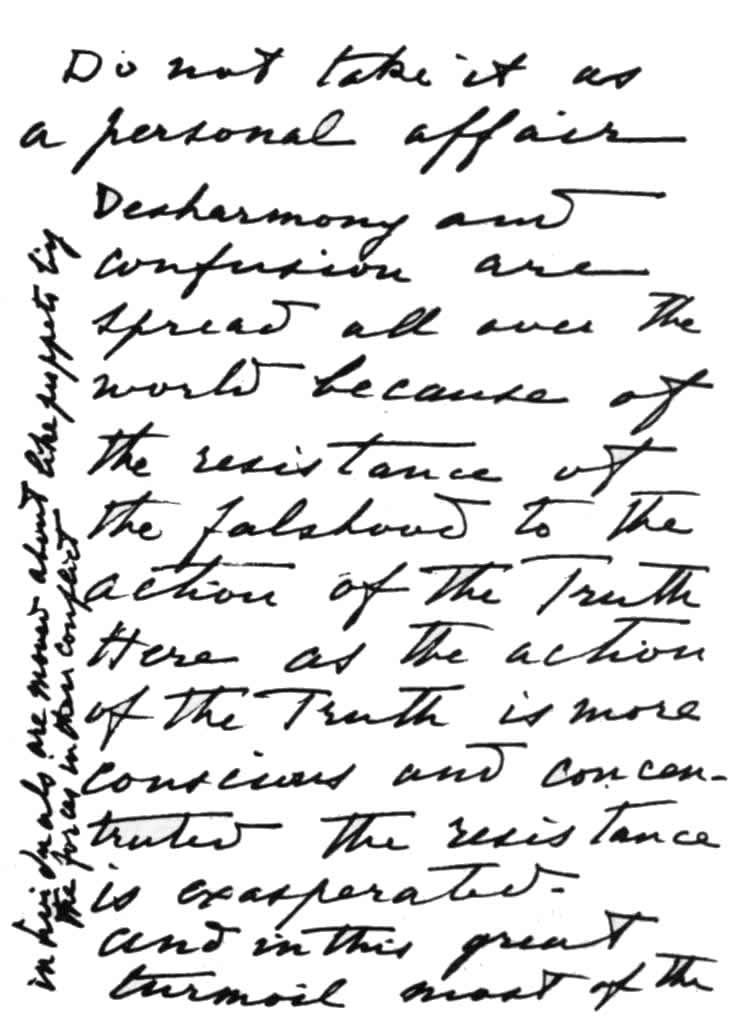 Do not take it as
a personal affair
Desharmony and
confusion are
spread all over the
world because of
the resistance of
the falshood to the
action of the Truth
Here as the action
of the Truth is more
conscious and concen-
trated the resistance
is exasperated-
and in this great
turmoil most of the
individuals are moved about like puppets by
the forces in their conflict